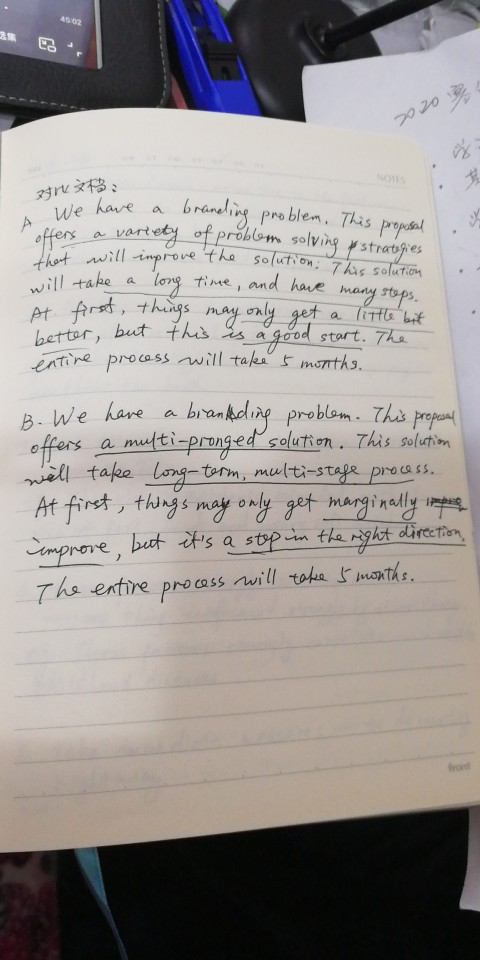 45:02
选集
2020
NOTES
对比文档：
A We have a branding problem. This proposal
offers a variety of problem solving strategies
that will improve the solution. This solution
will take a long time, and have many steps.
At first, things may only get a little bit
better, but this is a good start. The
entire process will take 5 months.
B. We have a branding problem. This proposal
offers a multi-pronged solution. This solution
will take long-term, multi-stage process.
At first, things may only get marginally
improve, but it's a step in the right direction.
The entire process will take 5 months.
front